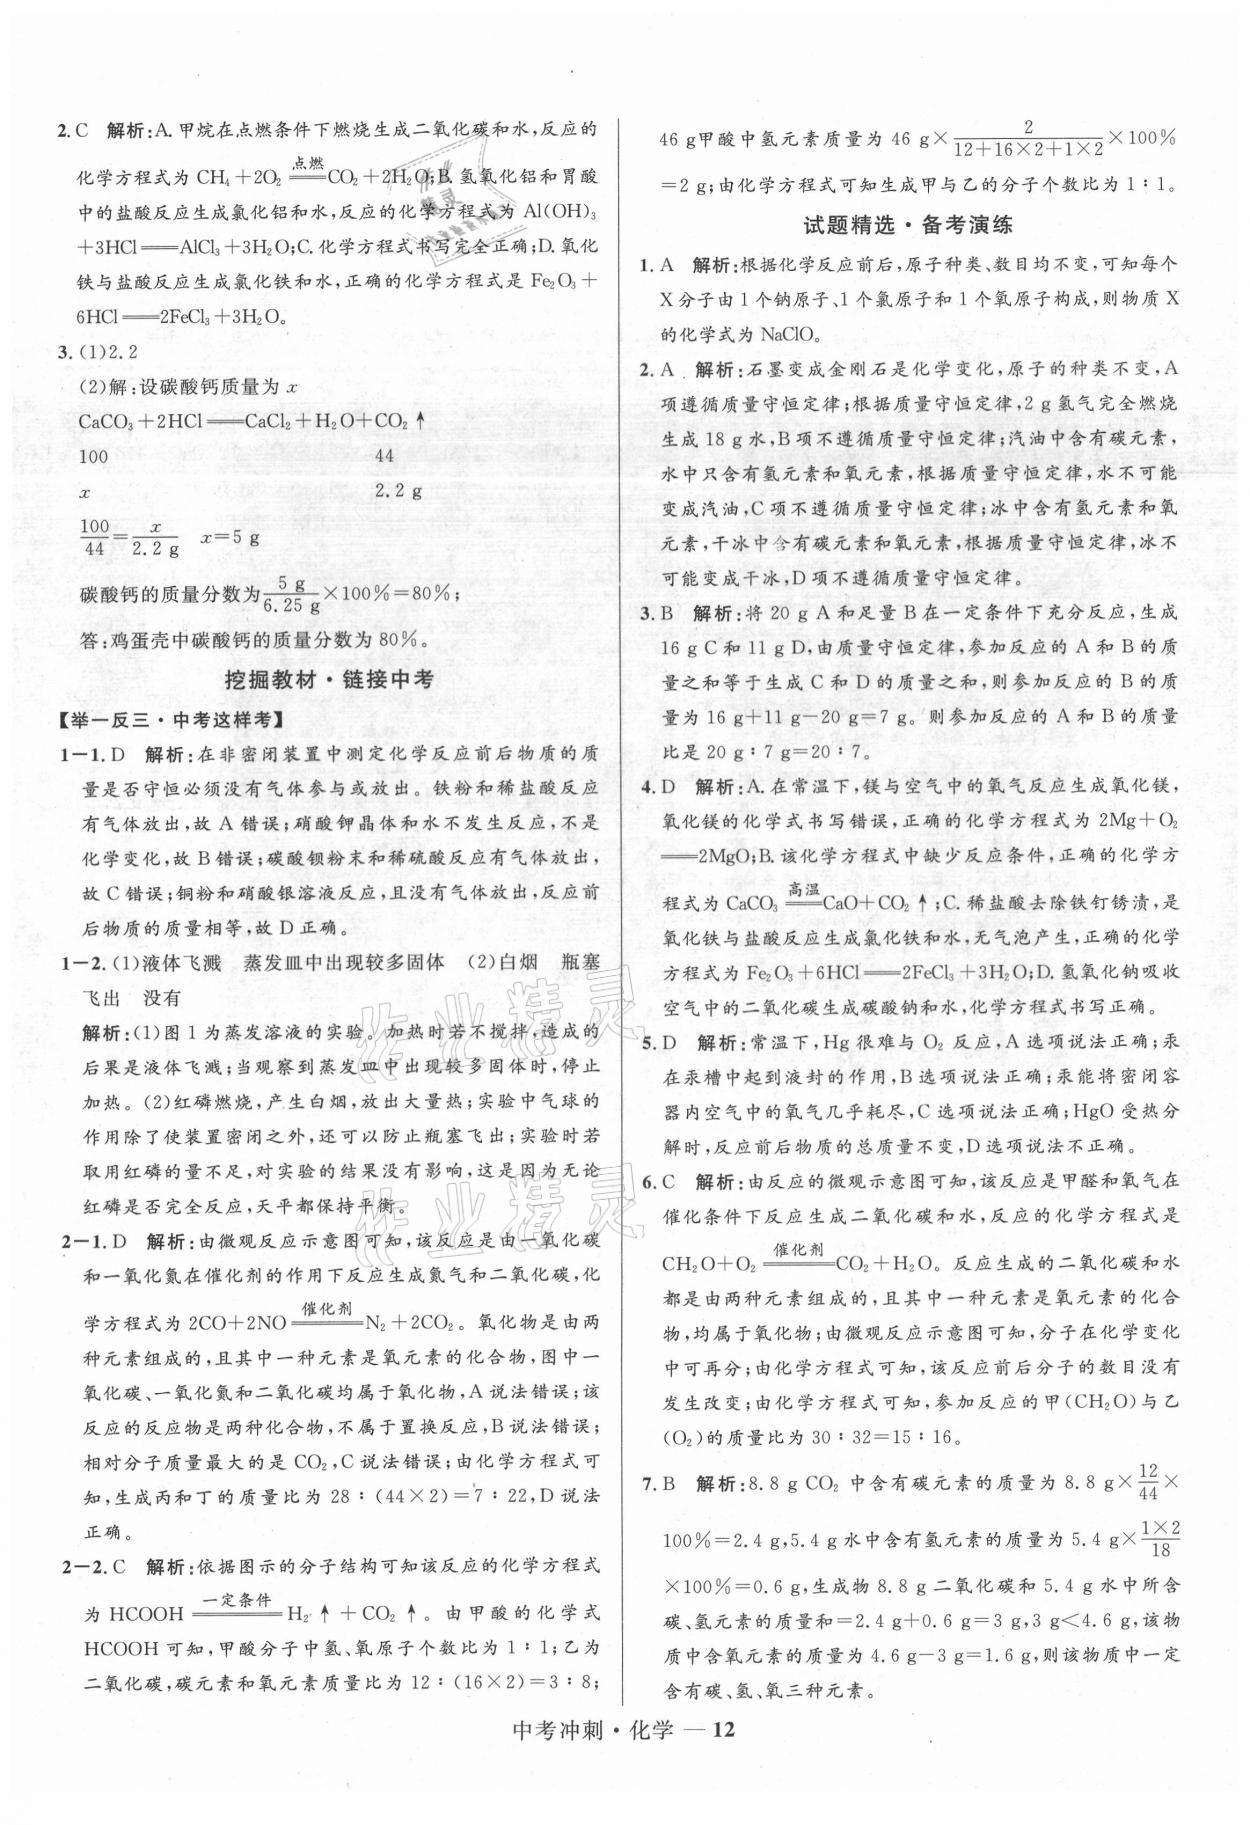 2. C 解析:A. 甲烷在点燃条件下燃烧生成二氧化碳和水,反应的
化学方程式为 CH₄+2O₂ ══点燃══ CO₂+2H₂O;B. 氢氧化铝和胃酸
中的盐酸反应生成氯化铝和水,反应的化学方程式为 Al(OH)₃
+3HCl══AlCl₃+3H₂O;C. 化学方程式书写完全正确;D. 氧化
铁与盐酸反应生成氯化铁和水,正确的化学方程式是 Fe₂O₃+
6HCl══2FeCl₃+3H₂O。
3. (1)2.2
(2)解:设碳酸钙质量为 x
CaCO₃+2HCl══CaCl₂+H₂O+CO₂↑
100 44
x 2.2 g
100/44=x/2.2 g x=5 g
碳酸钙的质量分数为5 g/6.25 g×100%=80%;
答:鸡蛋壳中碳酸钙的质量分数为 80%。
挖掘教材·链接中考
【举一反三·中考这样考】
1-1. D 解析:在非密闭装置中测定化学反应前后物质的质
量是否守恒必须没有气体参与或放出。铁粉和稀盐酸反应
有气体放出,故 A 错误;硝酸钾晶体和水不发生反应,不是
化学变化,故 B 错误;碳酸钡粉末和稀硫酸反应有气体放出,
故 C 错误;铜粉和硝酸银溶液反应,且没有气体放出,反应前
后物质的质量相等,故 D 正确。
1-2. (1)液体飞溅 蒸发皿中出现较多固体 (2)白烟 瓶塞
飞出 没有
解析:(1)图 1 为蒸发溶液的实验。加热时若不搅拌,造成的
后果是液体飞溅;当观察到蒸发皿中出现较多固体时,停止
加热。(2)红磷燃烧,产生白烟,放出大量热;实验中气球的
作用除了使装置密闭之外,还可以防止瓶塞飞出;实验时若
取用红磷的量不足,对实验的结果没有影响,这是因为无论
红磷是否完全反应,天平都保持平衡。
2-1. D 解析:由微观反应示意图可知,该反应是由一氧化碳
和一氧化氮在催化剂的作用下反应生成氮气和二氧化碳,化
学方程式为 2CO+2NO══催化剂══N₂+2CO₂。氧化物是由两
种元素组成的,且其中一种元素是氧元素的化合物,图中一
氧化碳、一氧化氮和二氧化碳均属于氧化物,A 说法错误;该
反应的反应物是两种化合物,不属于置换反应,B 说法错误;
相对分子质量最大的是 CO₂,C 说法错误;由化学方程式可
知,生成丙和丁的质量比为 28∶(44×2)=7∶22,D 说法
正确。
2-2. C 解析:依据图示的分子结构可知该反应的化学方程式
为 HCOOH ══一定条件══ H₂↑+CO₂↑。由甲酸的化学式
HCOOH 可知,甲酸分子中氢、氧原子个数比为 1∶1;乙为
二氧化碳,碳元素和氧元素质量比为 12∶(16×2)=3∶8;
46 g甲酸中氢元素质量为 46 g×2/(12+16×2+1×2)×100%
=2 g;由化学方程式可知生成甲与乙的分子个数比为 1∶1。
试题精选·备考演练
1. A 解析:根据化学反应前后,原子种类、数目均不变,可知每个
X分子由 1 个钠原子、1 个氯原子和 1 个氧原子构成,则物质 X
的化学式为 NaClO。
2. A 解析:石墨变成金刚石是化学变化,原子的种类不变,A
项遵循质量守恒定律;根据质量守恒定律,2 g 氢气完全燃烧
生成 18 g 水,B 项不遵循质量守恒定律;汽油中含有碳元素,
水中只含有氢元素和氧元素,根据质量守恒定律,水不可能
变成汽油,C 项不遵循质量守恒定律;冰中含有氢元素和氧
元素,干冰中含有碳元素和氧元素,根据质量守恒定律,冰不
可能变成干冰,D 项不遵循质量守恒定律。
3. B 解析:将 20 g A 和足量 B 在一定条件下充分反应,生成
16 g C 和 11 g D,由质量守恒定律,参加反应的 A 和 B 的质
量之和等于生成 C 和 D 的质量之和,则参加反应的 B 的质
量为 16 g+11 g-20 g=7 g。则参加反应的 A 和 B 的质量
比是 20 g∶7 g=20∶7。
4. D 解析:A. 在常温下,镁与空气中的氧气反应生成氧化镁,
氧化镁的化学式书写错误,正确的化学方程式为 2Mg+O₂
══2MgO;B. 该化学方程式中缺少反应条件,正确的化学方
程式为 CaCO₃══高温══CaO+CO₂↑;C. 稀盐酸去除铁钉锈渍,是
氧化铁与盐酸反应生成氯化铁和水,无气泡产生,正确的化学
方程式为 Fe₂O₃+6HCl══2FeCl₃+3H₂O;D. 氢氧化钠吸收
空气中的二氧化碳生成碳酸钠和水,化学方程式书写正确。
5. D 解析:常温下,Hg 很难与 O₂ 反应,A 选项说法正确;汞
在汞槽中起到液封的作用,B 选项说法正确;汞能将密闭容
器内空气中的氧气几乎耗尽,C 选项说法正确;HgO 受热分
解时,反应前后物质的总质量不变,D 选项说法不正确。
6. C 解析:由反应的微观示意图可知,该反应是甲醛和氧气在
催化条件下反应生成二氧化碳和水,反应的化学方程式是
CH₂O+O₂ ══催化剂══CO₂+H₂O。反应生成的二氧化碳和水
都是由两种元素组成的,且其中一种元素是氧元素的化合
物,均属于氧化物;由微观反应示意图可知,分子在化学变化
中可再分;由化学方程式可知,该反应前后分子的数目没有
发生改变;由化学方程式可知,参加反应的甲(CH₂O)与乙
(O₂)的质量比为 30∶32=15∶16。
7. B 解析:8.8 g CO₂ 中含有碳元素的质量为 8.8 g×12/44×
100%=2.4 g,5.4 g 水中含有氢元素的质量为 5.4 g×1×2/18
×100%=0.6 g,生成物 8.8 g 二氧化碳和 5.4 g 水中所含
碳、氢元素的质量和=2.4 g+0.6 g=3 g,3 g<4.6 g,该物
质中含氧元素的质量为 4.6 g-3 g=1.6 g,则该物质中一定
含有碳、氢、氧三种元素。
中考冲刺·化学 — 12
作业精灵
作业精灵
作业精灵